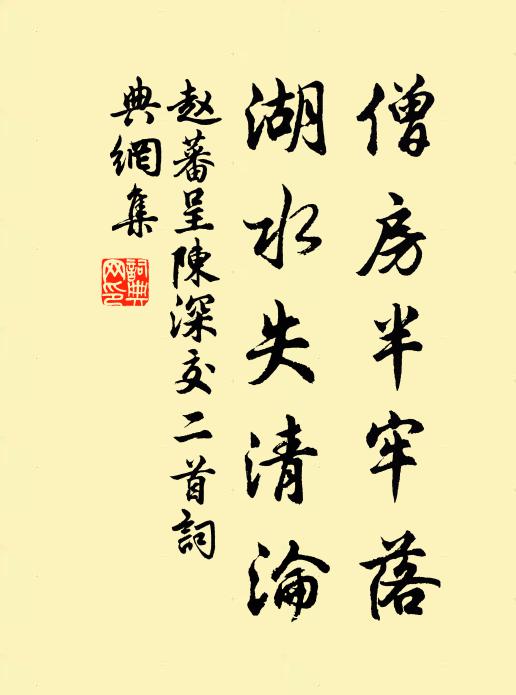 僧房半牢落
湖水失清淪
趙蕃呈陳深交二首詞
典網集
詞典網印